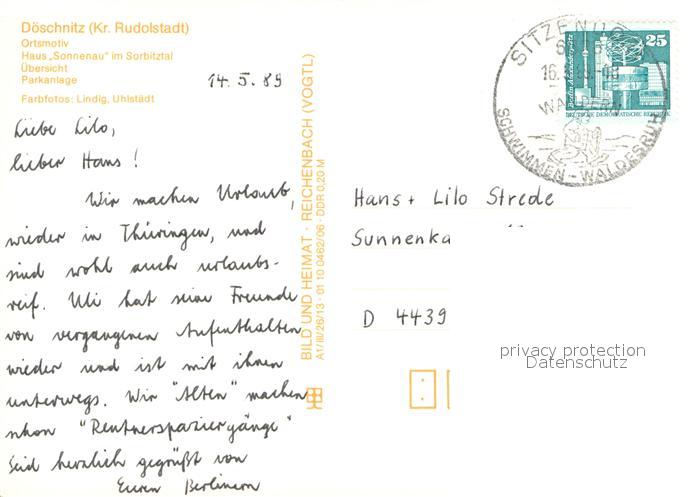 Döschnitz (Kr. Rudolstadt)
Ortsmotiv
Haus „Sonnenau" im Sorbitztal
Übersicht
Parkanlage
Farbfotos: Lindig, Uhlstädt
14. 5. 89
Liebe Lilo,
lieber Hans!
Wir machen Urlaub,
wieder in Thüringen, und
sind wohl auch urlaubs-
reif. Uli hat seine Freunde
von vergangenen Aufenthalten
wieder und ist mit ihnen
unterwegs. Wir "Alten" machen
schon "Rentnerspaziergänge"
Seid herzlich gegrüßt von
Euren Berlinern
BILD UND HEIMAT · REICHENBACH (VOGTL)
A1/III/26/13 · 01 10 0462/06 · DDR 0,20 M
SITZENDORF
WALDERN
SCHWIMMEN - WALDESRUH
25
DEUTSCHE DEMOKRATISCHE REPUBLIK
Hans + Lilo Strede
Sunnenka
D 4439
privacy protection
Datenschutz